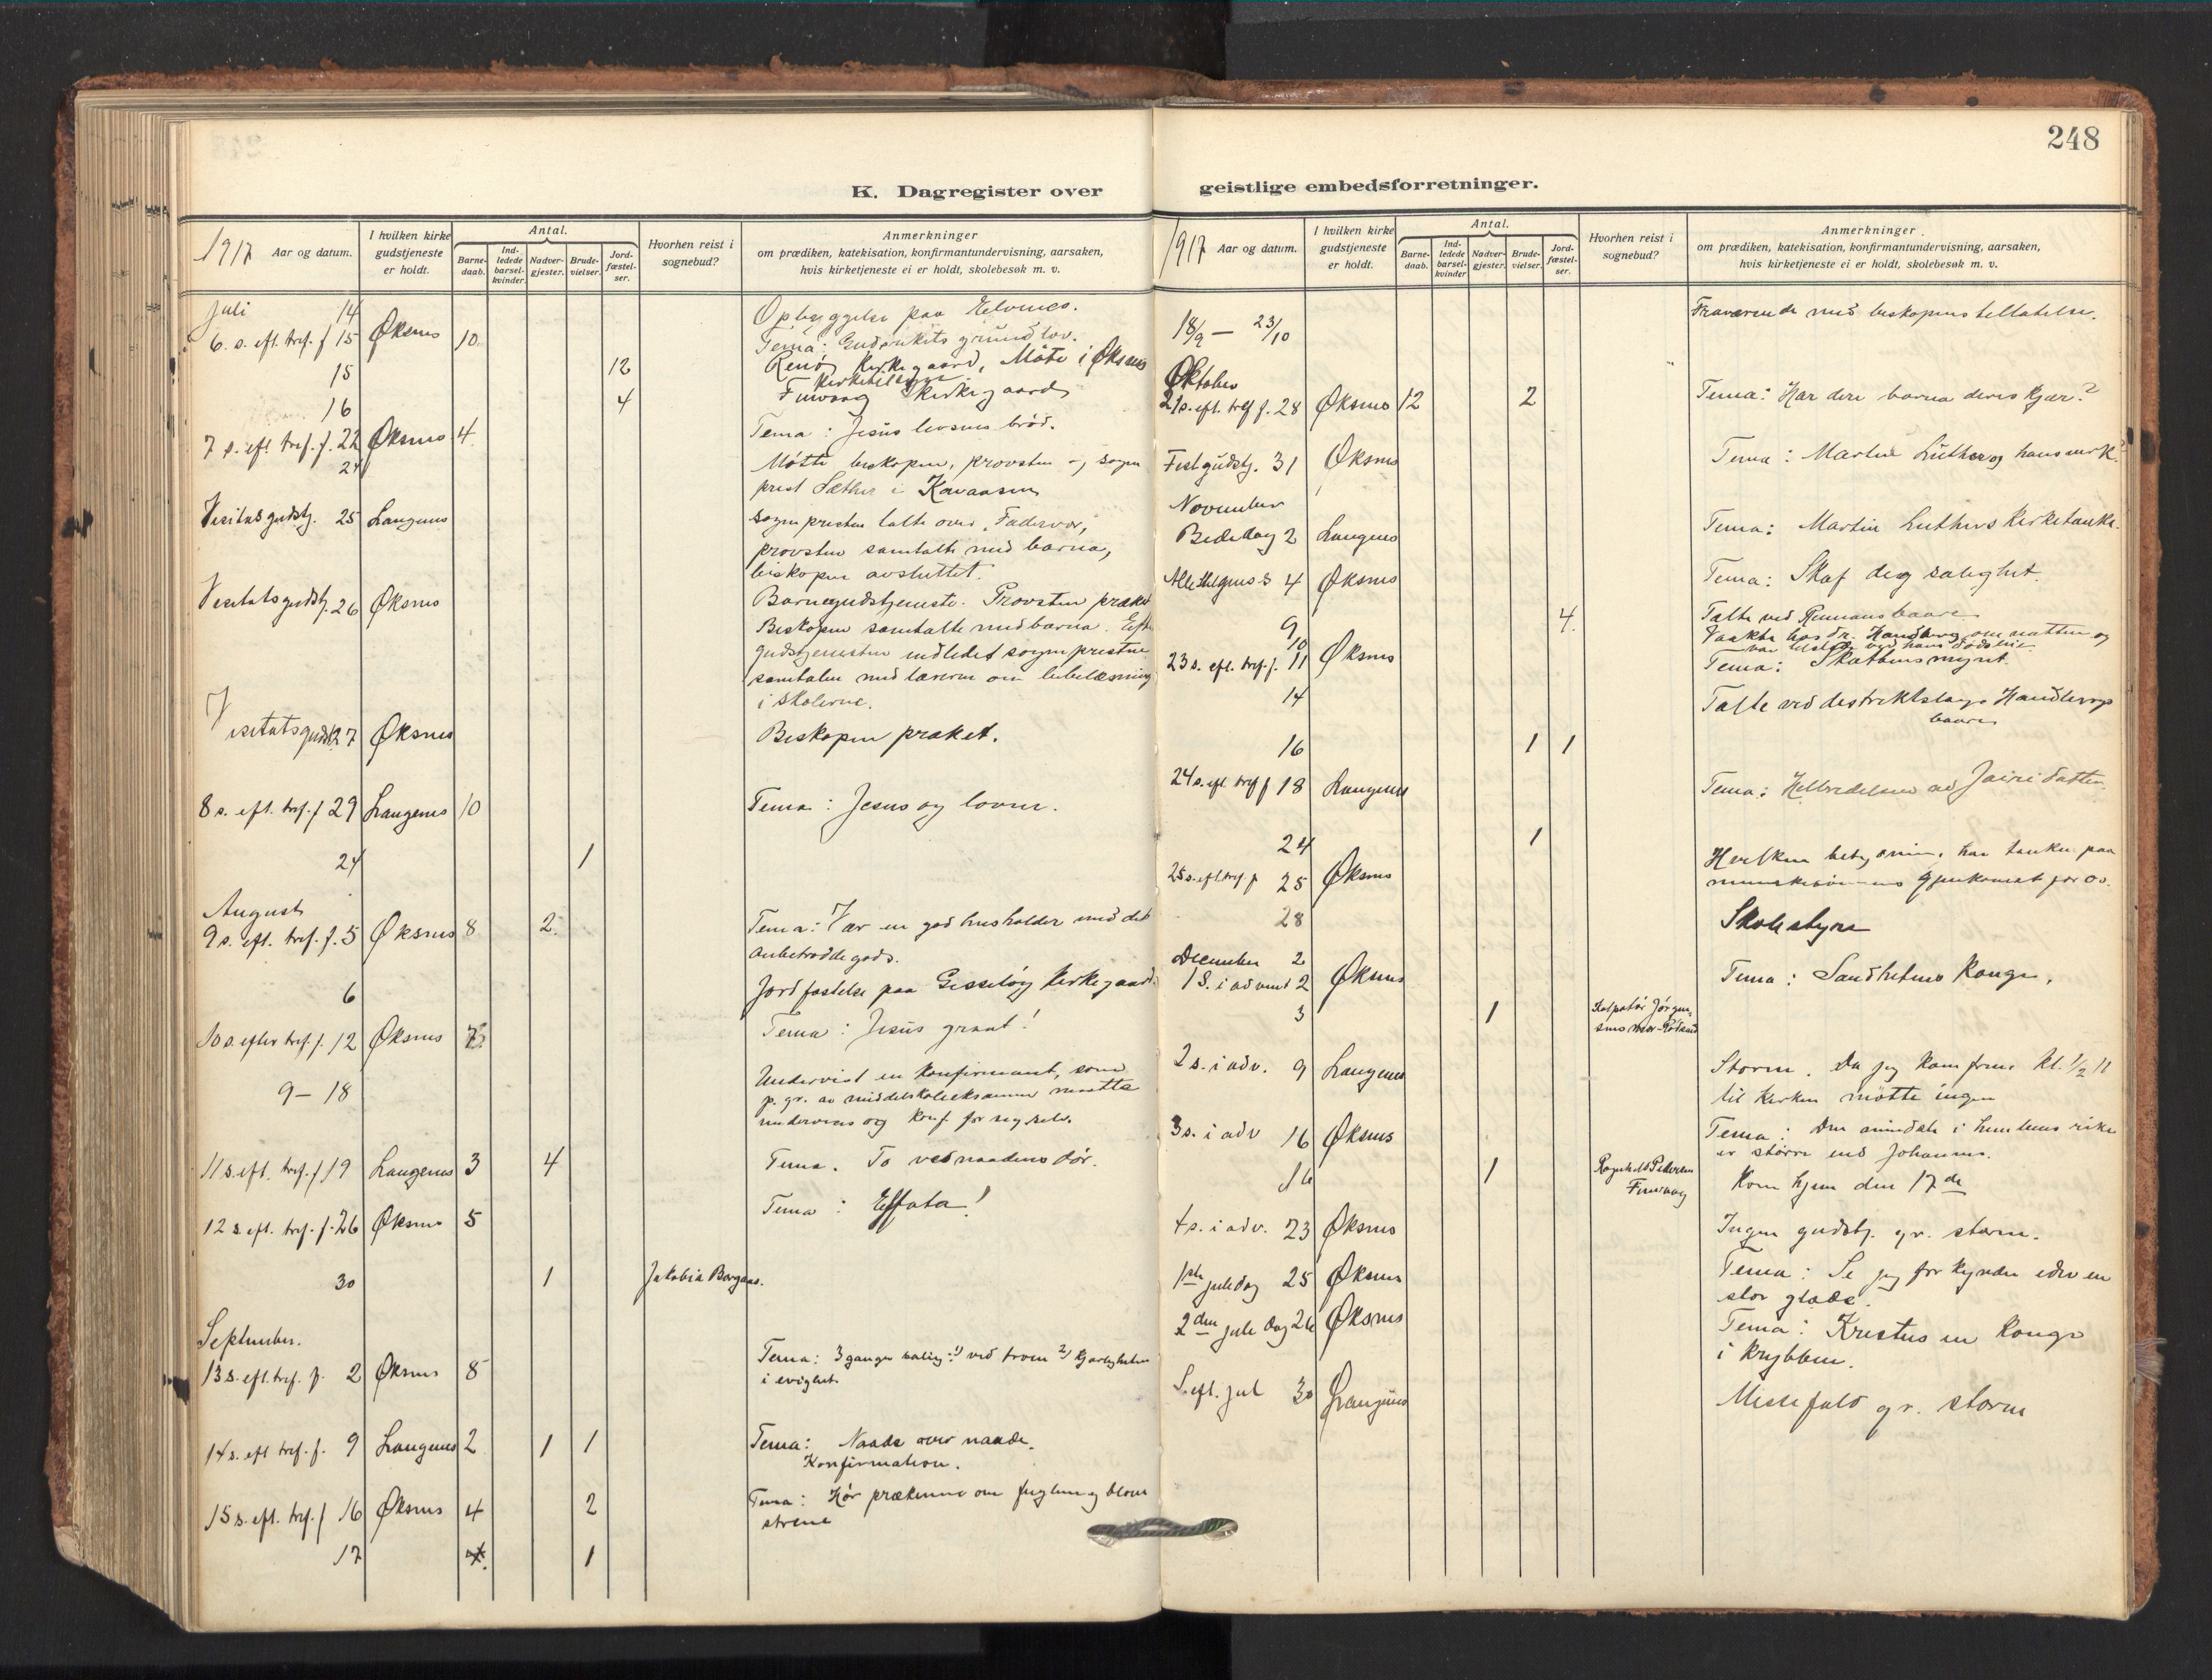 248
K. Dagregister over
geistlige embedsforretninger.
1917 Aar og datum.
I hvilken kirke gudstjeneste er holdt.
Antal.
Barne-daab.
Ind-ledede barsel-kvinder.
Nadver-gjester.
Brude-vielser.
Jord-fæstel-ser.
Hvorhen reist i sognebud?
Anmerkninger
om prædiken, katekisation, konfirmantundervisning, aarsaken,
hvis kirketjeneste ei er holdt, skolebesøk m. v.
Juli 14 Opbyggelse paa
6. s. eft. tref. f 15 Øksnes 10. Tema: Gudsrikets grundlov.
15 12 Kirkegaard, Møte i Øksnes
16 4 Kirkegaard
7 s. eft. tref. f. 22 Øksnes 4. Tema: Jesus livsens brød.
24 Møtte biskopen, provsten og sogne
prest Sæther i
Visitasgudstj. 25 Langenes sognepresten talte over "Fadervor",
provsten samtalte med barna,
biskopen avsluttet.
Visitatsgudstj. 26 Øksnes Barnegudstjeneste. Provsten præket
Biskopen samtalte med barna. Efter
gudstjenesten indledet sognepresten
samtalen med lærerne om bibellæsning
i skolerne.
Visitatsgudstj 27 Øksnes Biskopen præket.
8 s. eft. tref. f 29 Langenes 10 Tema: Jesus og loven.
24 1
August
9 s. eft. tref. f. 5 Øksnes 8 2. Tema: Vær en god husholder med det
anbetrodde gods.
6 Jordfæstelse paa Gisseløy Kirkegaard.
10 s. efter tref. f. 12 Øksnes 7 Tema: Jesus graat!
9 - 18 Undervist en konfirmant, som
p. gr. av middelskoleeksamen maatte
undervises og konf. for sig selv.
11 s. eft. tref. f 19 Langenes 3 4 Tema. To ved naadens dør.
12 s. eft. tref. f. 26 Øksnes 5 Tema: Effata!
30 1 Jakobia
September.
13 s. eft. tref. f. 2 Øksnes 8 Tema: 3 ganger salig: 1) ved troen 2) kjærligheten
i evighet
14 s. eft tref. f. 9 Langenes 2 1 1 Tema: Naade over naade.
Konfirmation.
15 s. eft. tref. f 16 Øksnes 4 2 Tema: Hør prækenene om fuglene og blom
sterne
17 1
1917 Aar og datum.
I hvilken kirke gudstjeneste er holdt.
Antal.
Barne-daab.
Ind-ledede barsel-kvinder
Nadver-gjester.
Brude-vielser.
Jord-fæstel-ser.
Hvorhen reist i sognebud?
Anmerkninger
om prædiken, katekisation, konfirmantundervisning, aarsaken,
hvis kirketjeneste ei er holdt, skolebesøk m. v.
18/9 - 23/10 Fraværende med biskopens tillatelse.
Oktober
21 s. eft. tref f. 28 Øksnes 12 2 Tema: Har dere barna deres kjær?
Festgudstj. 31 Øksnes Tema: Martin Luther og hans verk.
November
Bededag 2 Langenes Tema: Martin Luthers kirketanke.
Allehelgens s 4 Øksnes Tema: Skaf dig salighet.
9 4. Talte ved baare
10 Vaakte hos dr. Handberg om natten og
var tilstede ved hans dødsleie
23 s. eft. tref. f. 11 Øksnes Tema: Skattens mynt.
14 Talte ved distriktslæge Handbergs
baare
16 1 1
24 s. eft tref f 18 Langenes Tema: Helbredelsen av Jairi datter.
24 1
25 s. eft. tref. f 25 Øksnes Hvilken betydning har tanken paa
menneskesønnens gjenkomst for os.
28 Skolestyre
December 2
1 S. i advent 2 Øksnes Tema: Sandhetens Konge.
3 1
2 s. i adv. 9 Langenes Storm. Da jeg kom frem kl. 1/2 11
til kirken møtte ingen
3 s. i adv 16 Øksnes Tema: Den mindste i himlens rike
er større end Johannes.
16 1 Ragnhild Pedersen Kom hjem den 17de
4 s. i adv. 23 Øksnes Ingen gudstj. gr. storm.
1ste juledag 25 Øksnes Tema: Se jeg forkynder eder en
stor glæde.
2den juledag 26 Øksnes Tema: Kristus en konge
i krybben.
S. eft. jul 30 Langenes Messefald gr. storm